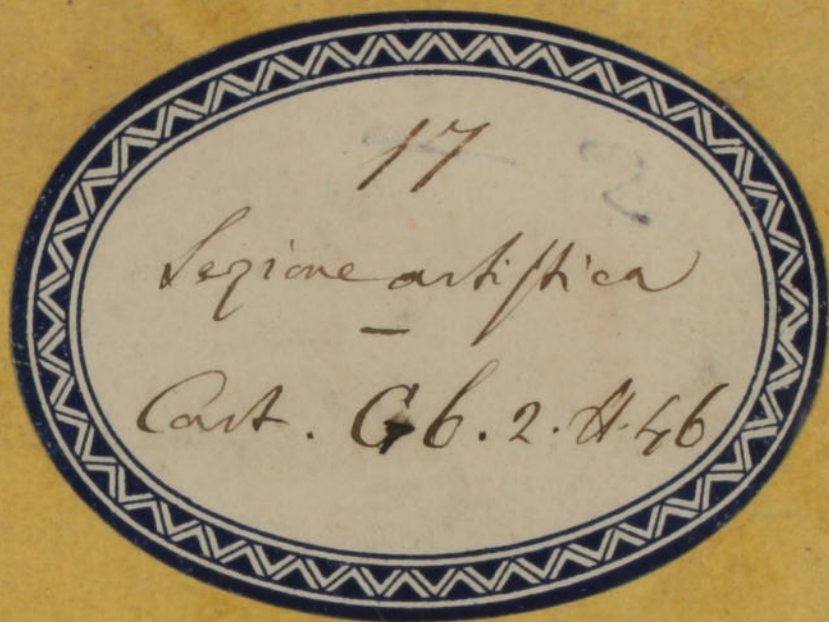 17
Sezione artistica
—
Cart. G b. 2. A. 46